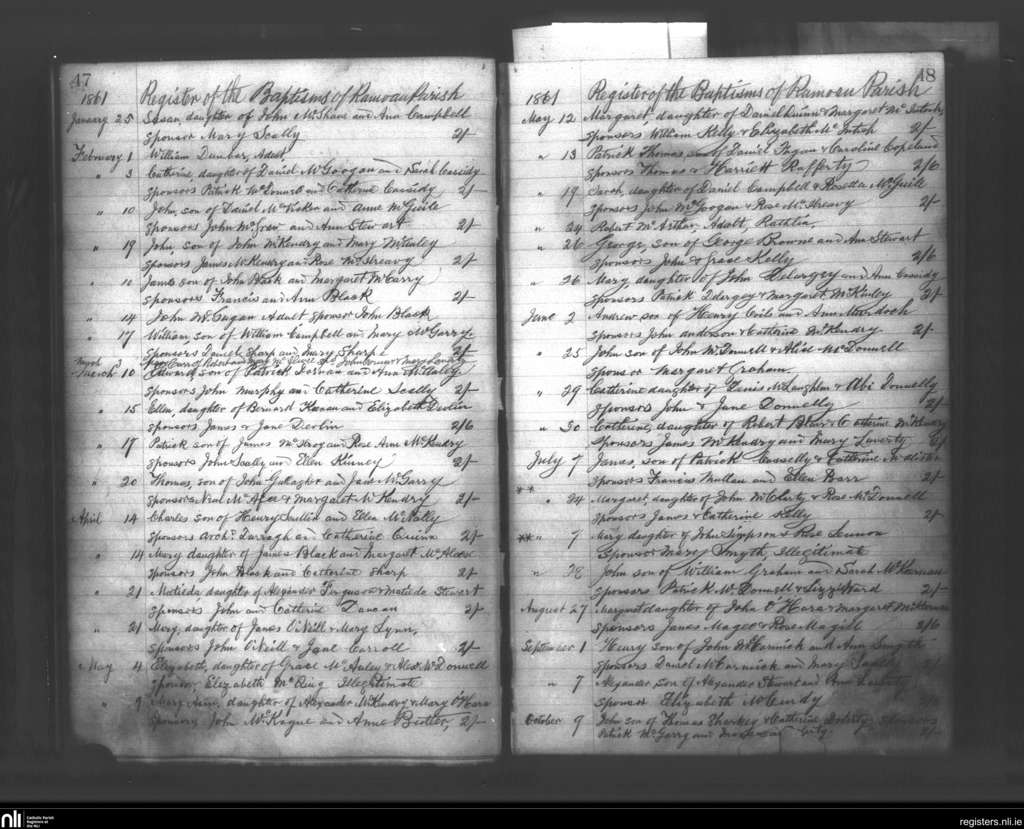 47
1861 Register of the Baptisms of Ramoan Parish
January 25 Susan, daughter of John McShane and Ann Campbell
Sponsor Mary Scally 2/-
February 1 William Dunbar, Adult,
" 3 Catherine, daughter of Daniel McGoogan and Sarah Cassidy
Sponsors Patrick McDonnell and Catherine Cassidy 2/-
" 10 John, son of Daniel and Anne McGuile
Sponsors John and Ann Stewart 2/-
" 19 John, son of John McKendry and Mary McAuley
Sponsors James McKendry and Rose McHreavy 2/-
" 10 James son of John Black and Margaret McCarry
Sponsors Francis and Ann Black 2/-
" 14 John McGugan Adult Sponsor John Black
" 17 William, son of William Campbell and Mary McGarry
Sponsors Daniel Sharp and Mary Sharpe 2/-
March 3
March 10 Edward, son of Patrick and Ann McAuley
Sponsors John Murphy and Catherine Scally 2/-
" 15 Ellen, daughter of Bernard Keenan and Elizabeth Devlin
Sponsors, James & Jane Devlin 2/6
" 17 Patrick son of James and Rose Ann McKendry
Sponsors John Scally and Ellen Kinney 2/-
" 20 Thomas, son of John Gallagher and Jane McGarry
Sponsors Neal McAfee & Margaret McKendry 2/-
April 14 Charles son of Henry Scullin and Ellen McNally
Sponsors Archd. Darragh and Catherine Quinn 2/-
" 14 Mary daughter of James Black and Margaret McAlister
Sponsors John Black and Catherine Sharp 2/-
" 21 Matilda daughter of Alexander Ferguson & Matilda Stewart
Sponsors John and Catherine Duncan 2/-
" 21 Mary, daughter of James O'Neill & Mary Lynn,
Sponsors John O'Neill & Jane Carroll 2/-
May 4 Elizabeth, daughter of Grace McAuley & Alexr. McDonnell
Sponsor, Elizabeth Illegitimate
" 9 Mary Ann, daughter of Alexander McKendry & Mary O'Hara
Sponsors John McKague and Anne Butler, 2/-
48
1861 Register of the Baptisms of Ramoan Parish
May 12 Margaret, daughter of Daniel Quinn & Margaret McIntosh,
Sponsors William Kelly & Elizabeth McIntosh 2/-
" 13 Patrick Thomas son of Daniel Fegan & Caroline Copeland
Sponsors Thomas & Harriett Rafferty 2/6
" 19 Sarah, daughter of Daniel Campbell & Rosetta McGuile
Sponsors John McGoogan & Rose McHreavy 2/-
" 24 Robert McArthur, Adult, Rathlin,
" 26 George, son of George Browne and Ann Stewart
Sponsors John & Grace Kelly 2/6
" 26 Mary daughter of John Delargey and Ann Cassidy
Sponsors Patrick Delargey & Margaret McKinley 2/-
June 2 Andrew son of Henry Coils and Ann Murdoch
Sponsors John Anderson & Catherine McKendry 2/-
" 25 John son of John McDonnell & Alice McDonnell
Sponsor Margaret Graham.
" 29 Catherine daughter of Denis McLaughlin & Abi Donnelly
Sponsors John & Jane Donnelly 2/-
" 30 Catherine, daughter of Robert Blair & Catherine McKendry
Sponsors James McKendry and Mary Laverty 2/-
July 7 James, son of Patrick Casselly & Catherine McAlister
Sponsors Francis Mullan and Ellen Barr 2/-
** " 24 Margaret, daughter of John & Rose McDonnell
Sponsors James & Catherine Kelly 2/-
** " 7 Mary daughter of John Simpson & Rose Lennon
Sponsor Mary Smyth, Illegitimate
" 28 John son of William Graham and Sarah McKiernan
Sponsors Patrick McDonnell & Lizzie Ward 2/-
August 27 Margaret daughter of John O'Hara & Margaret
Sponsors James Magee & Rose Magill 2/6
September 1 Henry son of John McCormick and Ann Smyth
Sponsors Daniel McCormick and Mary Scally 2/-
" 7 Alexander son of Alexander Stewart and Ann Laverty
Sponsor Elizabeth McCurdy
October 9 John son of Thomas Sharkey & Catherine Doherty Sponsors
Patrick McGarry and 2/-
nli Catholic Parish Registers at the NLI
registers.nli.ie